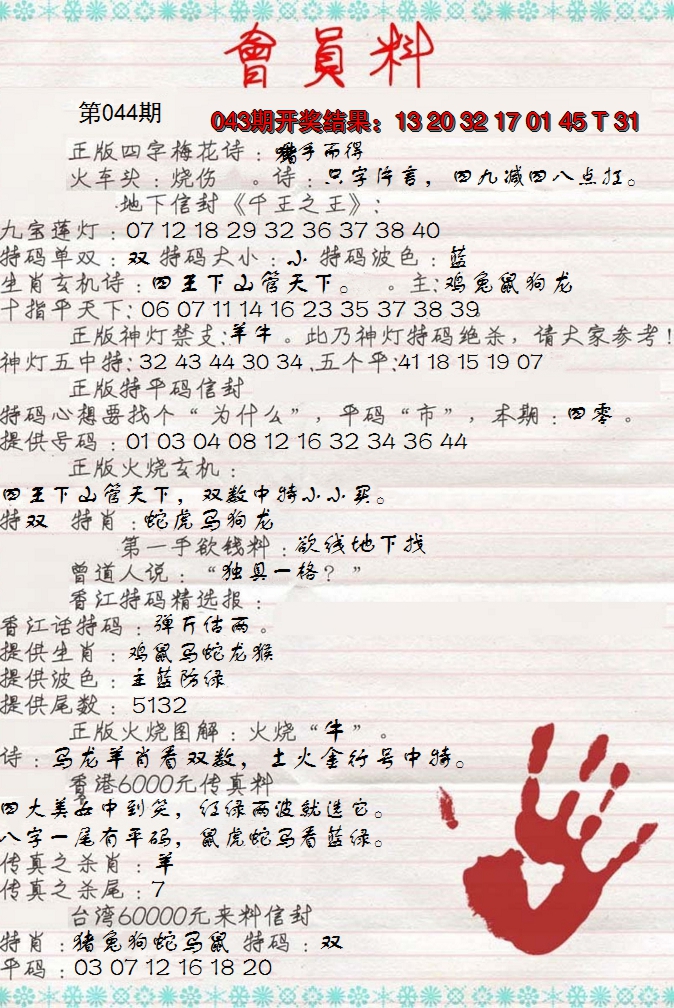 會員料
第044期
043期开奖结果：13 20 32 17 01 45 T 31
正版四字梅花诗：手而得
火车头：烧伤 。诗：只字片言，四九减四八点狂。
地下信封《千王之王》：
九宝莲灯：07 12 18 29 32 36 37 38 40
特码单双：双 特码大小：小 特码波色：蓝
生肖玄机诗：四王下山管天下。 。主:鸡兔鼠狗龙
十指平天下:06 07 11 14 16 23 35 37 38 39
正版神灯禁支:羊牛。此乃神灯特码绝杀，请大家参考!
神灯五中特:32 43 44 30 34.五个平:41 18 15 19 07
正版特平码信封
特码心想要找个“为什么”，平码“市”，本期：四零。
提供号码：01 03 04 08 12 16 32 34 36 44
正版火烧玄机：
四王下山管天下，双数中特小小买。
特双 特肖：蛇虎马狗龙
第一手欲钱料：欲钱地下找
曾道人说：“独具一格？”
香江特码精选报：
香江话特码：弹斤估两。
提供生肖：鸡鼠马蛇龙猴
提供波色：主蓝防绿
提供尾数：5132
正版火烧图解：火烧“牛”。
诗：马龙羊肖看双数，土火金行号中特。
香港6000元传真料
四大美女中到笑，红绿两波就选它。
八字一尾有平码，鼠虎蛇马看蓝绿。
传真之杀肖：羊
传真之杀尾：7
台湾60000元来料信封
特肖：猪兔狗蛇马鼠 特码：双
平码：03 07 12 16 18 20